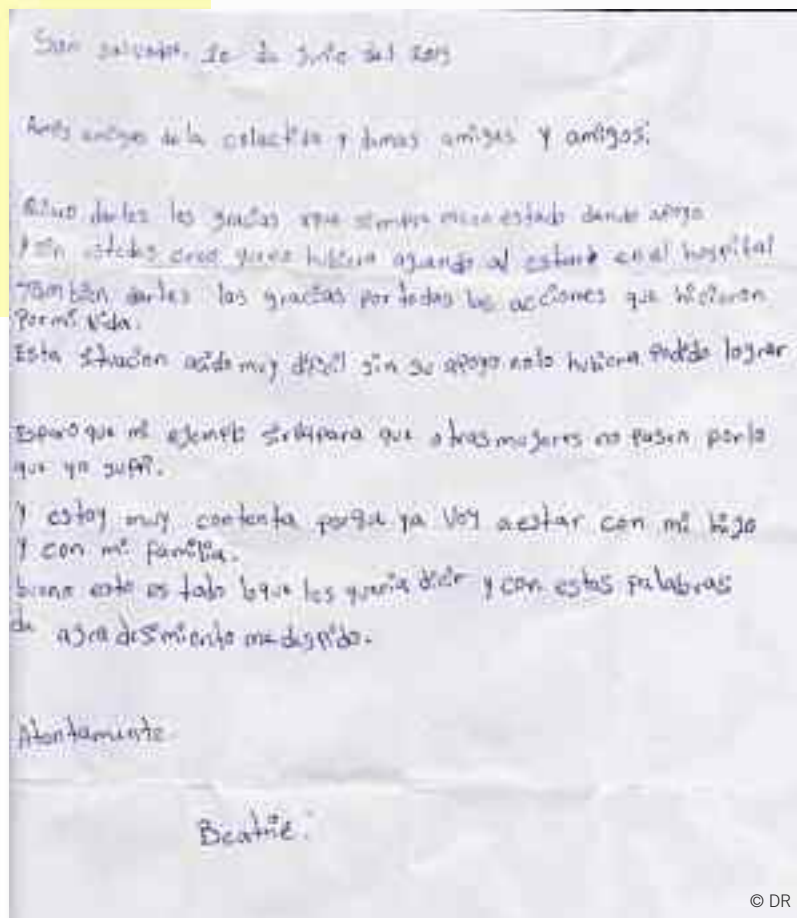 San salvador, 10 de Junio del 2013
Amis amigas de la colectiva y demas amigas y amigos:
Quiero darles las gracias que siempre man estado dando apoyo
Y sin ustedes creo que no hubiera aguando al estar en el hospital
Tambien darles las gracias por todas las acciones que hicieron
Por mi vida.
Esta situacion asido muy dificil sin su apoyo nolo hubiera Podido lograr
Espero que mi ejemplo sirva para que otras mujeres no pasen por lo
que yo sufri.
Y estoy muy contenta porque ya Voy aestar con mi hijo
Y con mi familia.
bueno esto es todo loque les queria decir y con estas palabras
de agradesimiento medespido.
Atentamente.
Beatriz.
© DR